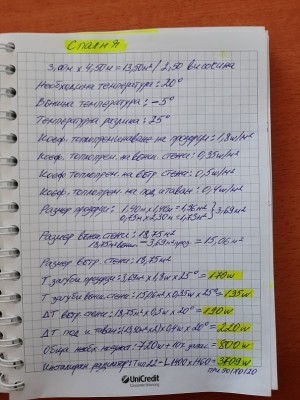 Спалня
3,00м x 4,50м = 13,50м² / 2,50 височина
Необходима температура: 20°
Външна температура: -5°
Температурна разлика: 25°
Коеф. топлопреминаване на прозорци: 1,8w/м²
Коеф. топлопрем. на външ. стени: 0,35w/м²
Коеф. топлопрем. на вътр. стени: 0,5w/м²
Коеф. топлопрем. на под и таван: 0,4w/м²
Размер прозорци: 1,40м x 1,40м = 1,96м²
0,75м x 2,30м = 1,73м² } 3,69м²
Размер външ. стени: 18,75м²
18,75м² - 3,69м² = 15,06м²
Размер вътр. стени: 18,75м²
Т загуби прозорци: 3,69м² x 1,8w x 25° = 170w
Т загуби външ. стени: 15,06м² x 0,35w x 25° = 135w
ΔТ вътр. стени: 18,75м² x 0,5w x 20° = 190w
ΔТ под и таван: x 0,4w x 20° = 220w
Обща необх. мощност: 720w + 10% = 800w
Инсталиран радиатор: Тип 22 - = w
UniCredit